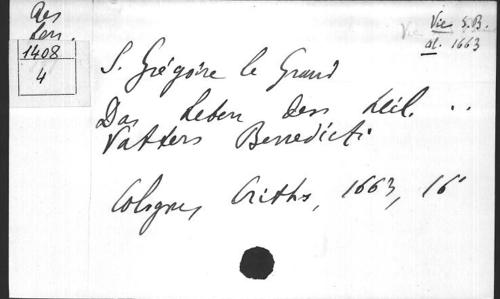 Res
Len.
1408
4
Vie S.B.
al. 1663
S. Grégoire le Grand
Das Leben des Heil. ..
Vatters Benedicti
Cologne, 1663, 16°